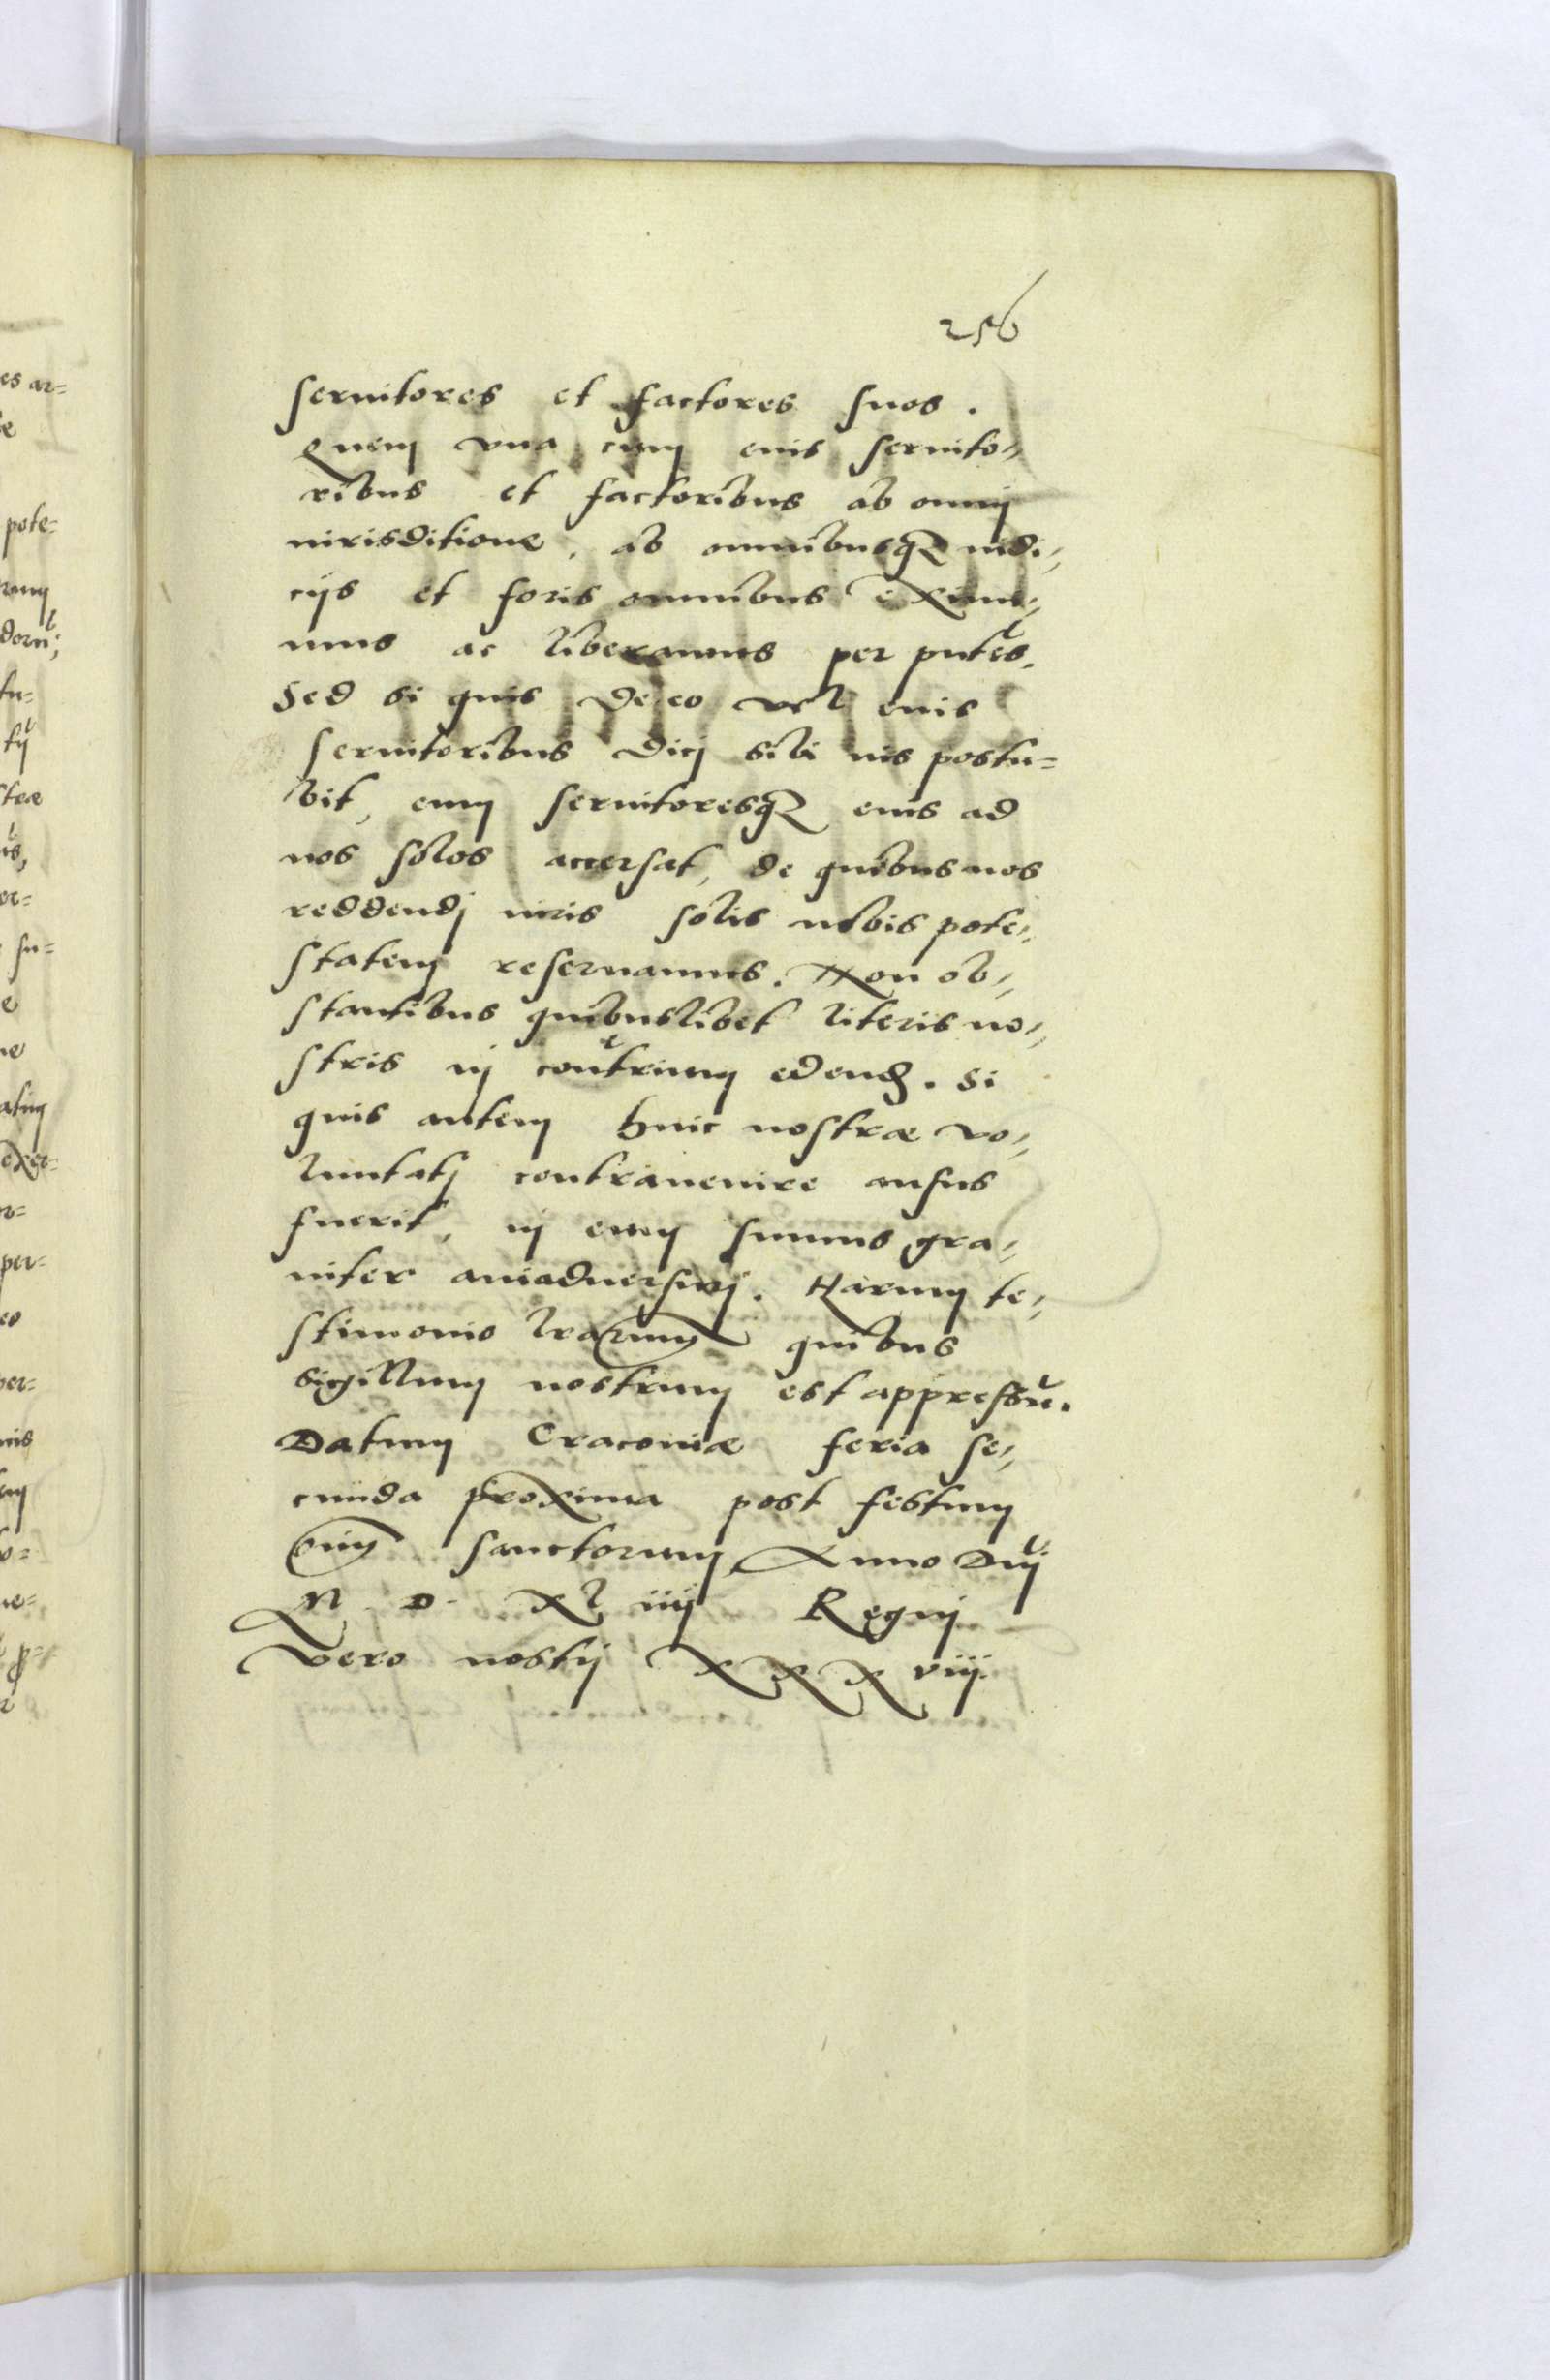 256
seruitores et factores suos.
Quem vna cum eius seruito,,
ribus et factoribus ab omnj
iurisditione, ab omnibusqꝫ iudi,,
cijs et foris omnibus eximi,,
mus ac liberamus per pntes.
Sed si quis de eo vel eius
seruitoribus dicj sibi ius postu=
bit, eum seruitoresqꝫ eius ad
nos solos accersat, de quibus nos
reddendj iuris solis nobis pote,,
statem reseruamus. Non ob,,
stantibus quibuslibet literis no,,
stris in contrium edend. Si
quis autem huic nostræ vo,,
luntatj contrauenire ausus
fuerit, in eum sumus gra,,
uiter aniaduersurj. Harum te,,
stimonio lrarum quibus
sigillum nostrum est appressū.
Datum Cracouiæ feria se,,
cunda proxima post festum
Oim sanctorum Anno Dnj
M D xl iiij Regnj
Vero nostrj X X X viij.
es ar=
e
pote=
rum
dorū;
tu=
steæ
er=
su=
e
ne
atim
exer=
r=
per=
eo
per=
nis
o=
ne=